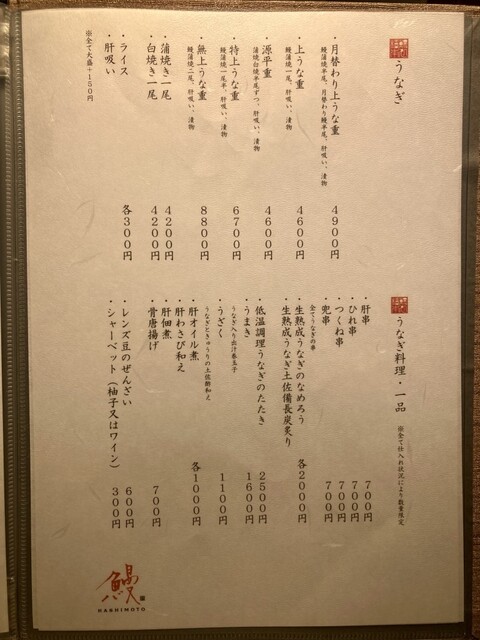 うなぎ
・月替わり上うな重 4900円
鰻蒲焼半尾、月替わり鰻半尾、肝吸い、漬物
・上うな重 4600円
鰻蒲焼一尾、肝吸い、漬物
・源平重 4600円
蒲焼白焼半尾ずつ、肝吸い、漬物
・特上うな重 6700円
鰻蒲焼一尾半、肝吸い、漬物
・無上うな重 8800円
鰻蒲焼二尾、肝吸い、漬物
・蒲焼き一尾 4200円
・白焼き一尾 4200円
・ライス
・肝吸い 各300円
※全て大盛+150円
うなぎ料理・一品
※全て仕入れ状況により数量限定
・肝串 700円
・ひれ串 700円
・つくね串 700円
・兜串 700円
全てうなぎの串
・生熟成うなぎのなめろう
・生熟成うなぎ土佐備長炭炙り 各2000円
・低温調理うなぎのたたき 2500円
・うまき 1600円
うなぎ入り出汁巻玉子
・うざく 1100円
うなぎときゅうりの土佐酢和え
・肝オイル煮
・肝わさび和え
・肝佃煮 各1000円
・骨唐揚げ 700円
・レンズ豆のぜんざい 600円
・シャーベット(柚子又はワイン) 300円
鰻
HASHIMOTO